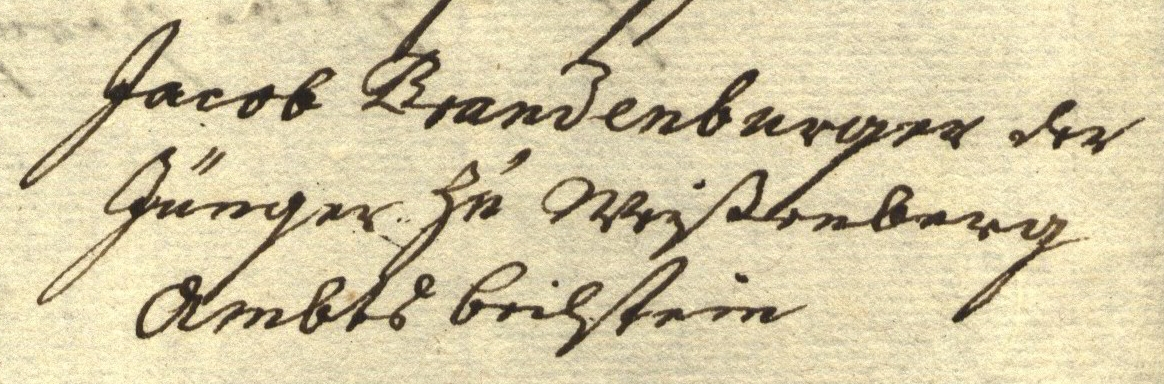 Jacob Brandenburger der
Jünger zu Weißenberg
Ambts beilstein